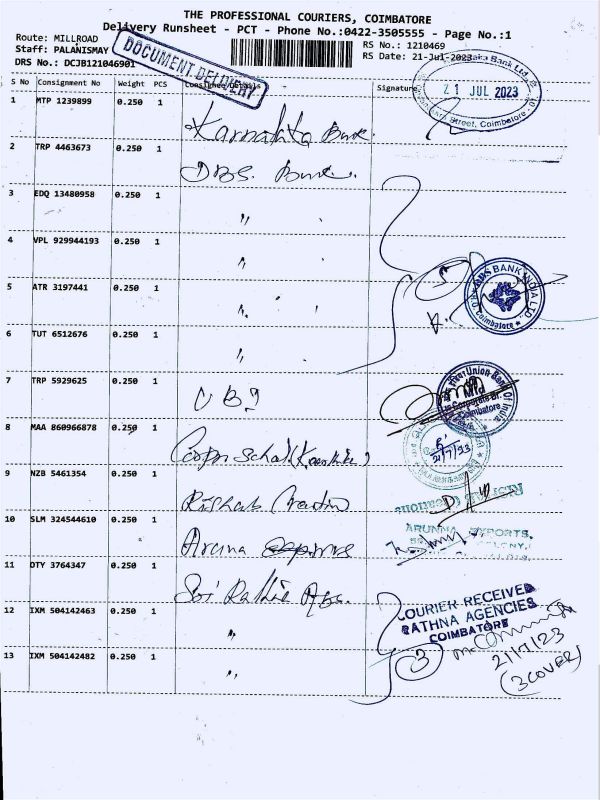 THE PROFESSIONAL COURIERS, COIMBATORE
Delivery Runsheet - PCT - Phone No.:0422-3505555 - Page No.:1
Route: MILLROAD
Staff: PALANISMAY
DRS No.: DCJB121046901
RS No.: 1210469
RS Date: 21-Jul-2023
DOCUMENT DELIVERY
S No Consignment No Weight PCS Consignee Details Signature
21 JUL 2023
Street, Coimbatore
1 MTP 1239899 0.250 1 Karnataka Bank
2 TRP 4463673 0.250 1 DBS. Bank.
3 EDQ 13480958 0.250 1 "
4 VPL 929944193 0.250 1 "
5 ATR 3197441 0.250 1 "
DBS BANK INDIA LTD.
Coimbatore
6 TUT 6512676 0.250 1 "
7 TRP 5929625 0.250 1 UBI
Union Bank Of India
Corporate Br.
Coimbatore
8 MAA 860966878 0.250 1
21/7/23
9 NZB 5461354 0.250 1 Rishab
10 SLM 324544610 0.250 1 Aruna
ARUNA EXPORTS,
11 OTY 3764347 0.250 1 Sri Rathna Ags.
COURIER RECEIVED
RATHNA AGENCIES
COIMBATORE
12 IXM 504142463 0.250 1 "
3
21/7/23
(3 COVER)
13 IXM 504142482 0.250 1 "